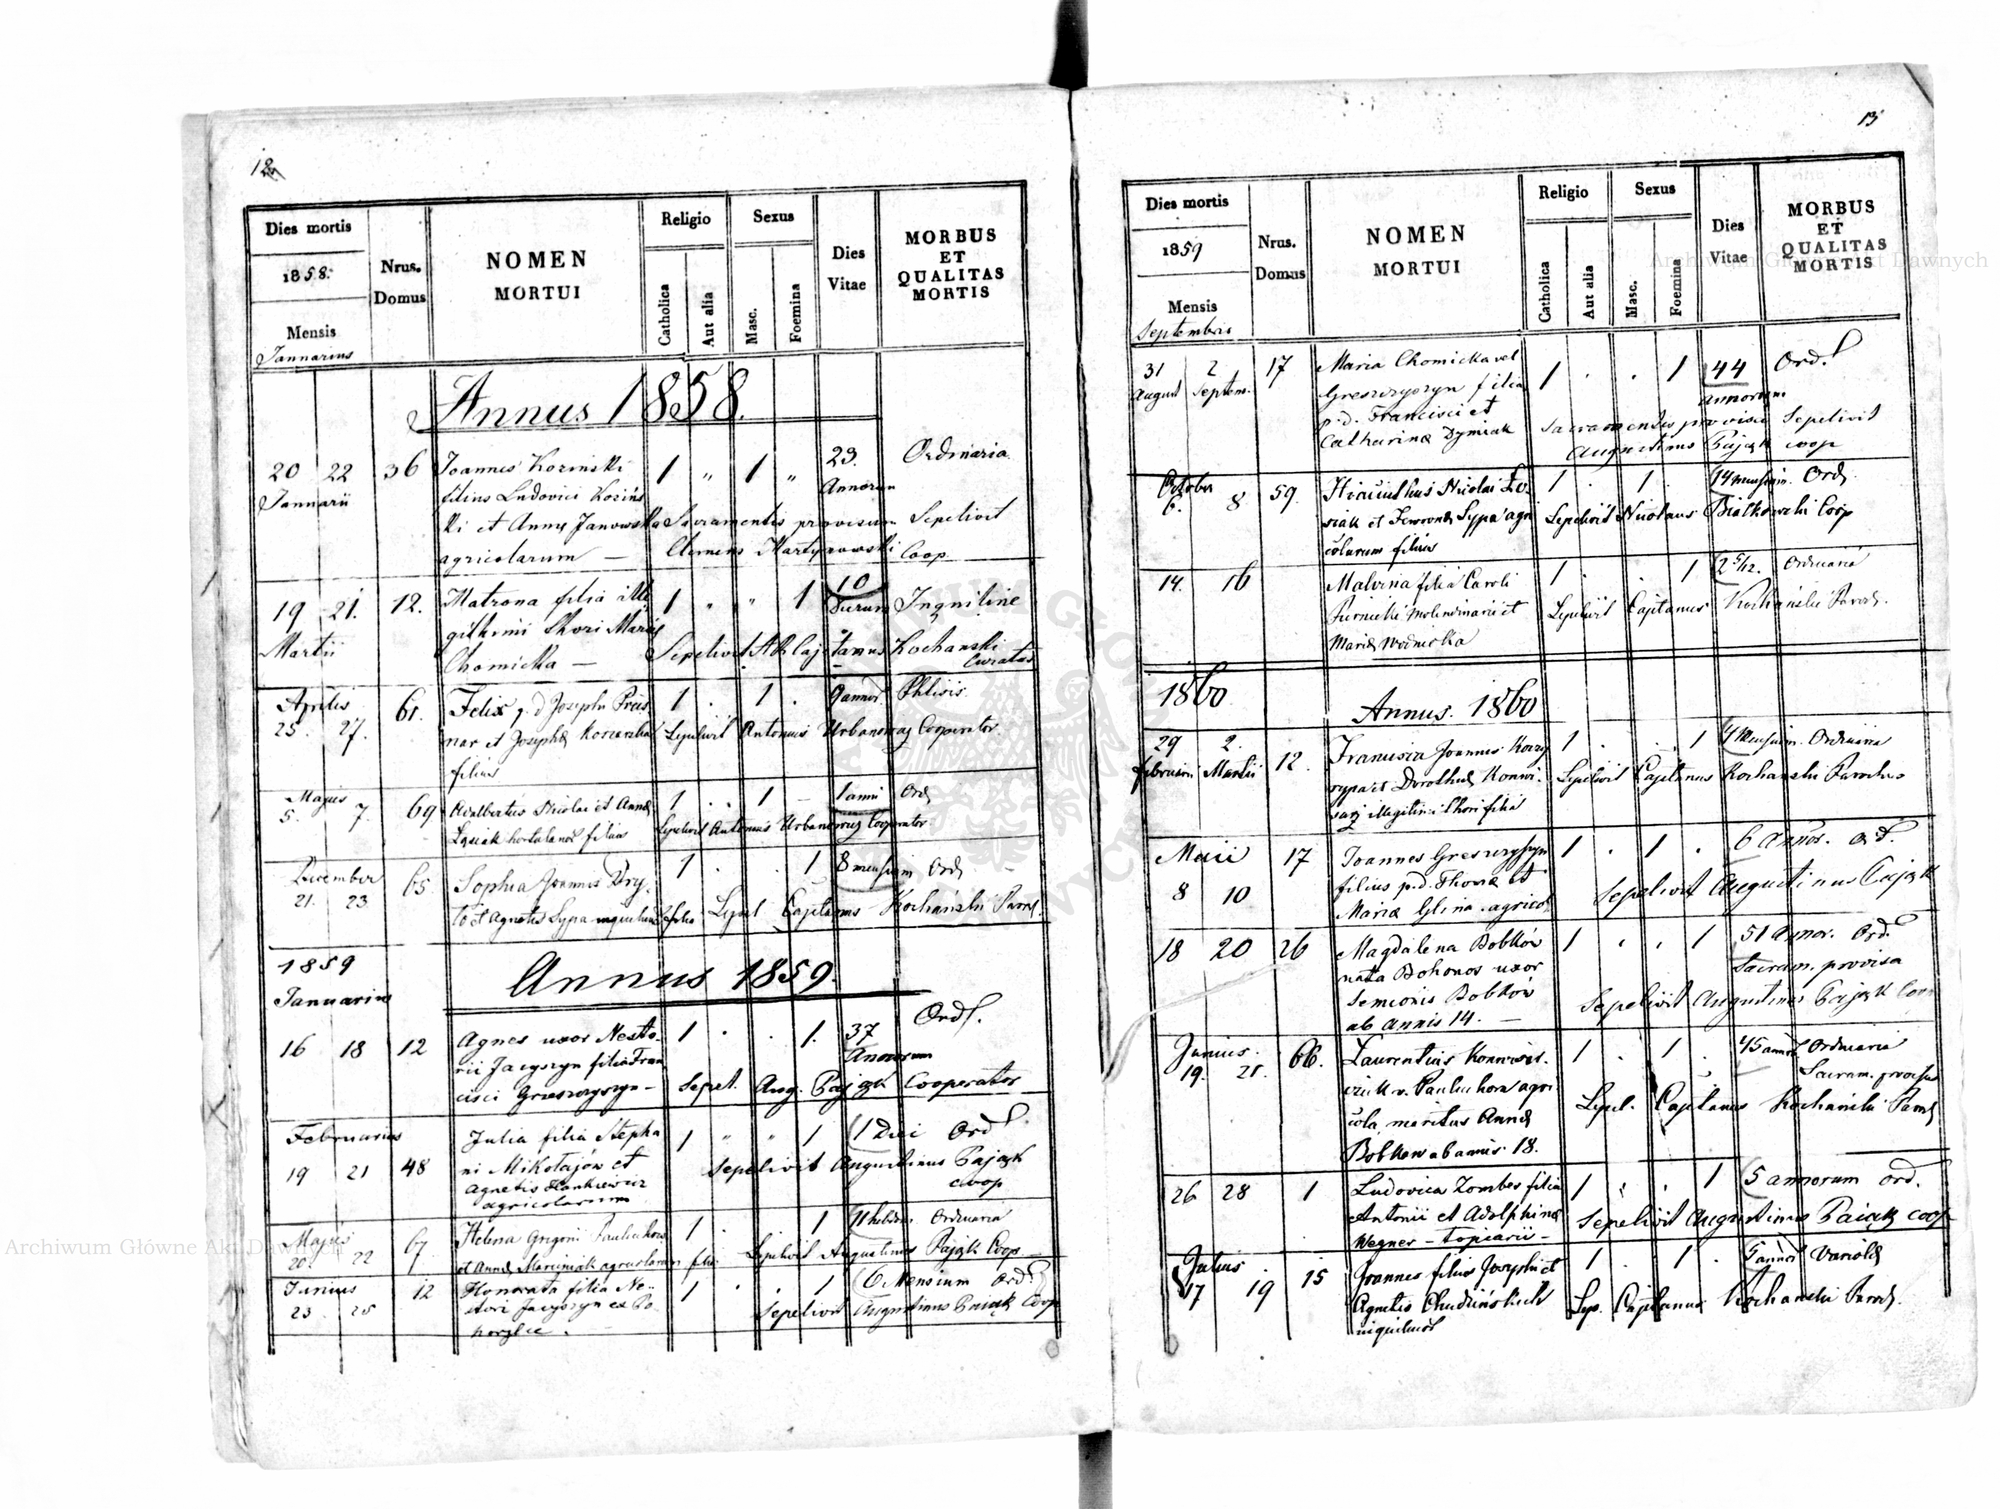 12
Dies mortis
1858.
Mensis
Januarius
Nrus.
Domus
NOMEN
MORTUI
Religio
Catholica
Aut alia
Sexus
Masc.
Foemina
Dies
Vitae
MORBUS
ET
QUALITAS
MORTIS
Annus 1858.
20 22 36 Joannes Kozinski 1 " 1 " 23. Ordinaria
Januarii filius Ludovici Kozińs Annorum
ki et Annę Janowska Sacramentis provisum Sepelivit
agricolarum — Clemens Martynowski Coop.
19 21. 12. Matrona filia ille 1 " " 1 10
Martii githimi thori Maria Sepelivit Cajetanus Kochanski
Chomicka — Curatus
Aprilis
25. 27. 61. Felix 1 . 1 . 9 annor. Phtisis
Sepelivit Antonius Urbanowicz Cooperator
filius
Majus
5. 7. 69 Adalbertus Nicolai et Annæ 1 . . 1 — 1 anni Ord
filius Sepelivit Antonius Urbanowicz Cooperator
December
21. 23 65. Sophia Joannis 1 . . 1 8 mensium Ord
et Agnetis Sypa filia Sepel Cajetanus Kochański Paroch.
1859
Januarius
Annus 1859.
16 18 12 Agnes uxor Nesto- 1 . . 1. 37 Ord.
rii Jacyszyn filia Fran Annorum
cisci Greszczyszyn — Sepel. Aug. Pająk Cooperator
Februarius
19 21 48 Julia filia Stepha 1 " " 1 1 Diei Ord
ni Mikołajów et Sepelivit Augustinus Pająk
Agnetis Hankiewicz Coop
agricolarum
Majus
20. 22 67 Helena Grigorii Pauluchow 1 . 1 11 hebdom. Ordinaria
et Annæ Marciniak agricolarum filia Sepelivit Augustinus Pająk Coop.
Junius
23. 25 12 Honorata filia Ne- 1 . . 1 6 Mensium Ord.
storii Jacyszyn ex Po- Sepelivit Augustinus Pająk Coop
horylce.
13
Dies mortis
1859
Mensis
Septembris
Nrus.
Domus
NOMEN
MORTUI
Religio
Catholica
Aut alia
Sexus
Masc.
Foemina
Dies
Vitae
MORBUS
ET
QUALITAS
MORTIS
31 2 17 Maria Chomicka vel 1 . . 1 44 Ord.
August Septem. Greszczyszyn filia Annorum
p.d. Francisci et Sacramentis provisa Sepelivit
Catharinæ Dymiak Augustinus Pająk coop
October
6. 8 59. Hiacinthus Nicolai 1 . 1 . 14 mensium. Ord.
et Sypa agri Sepelivit Nicolaus Białkowski Coop
colarum filius
14. 16 Malvina filia Caroli 1 . . 1 2 5/12. Ordinaria
molendinarii et Sepelivit Cajetanus Kochański Paroch.
Mariæ Wodnicka
1860 Annus. 1860
29 2. 12. Francisca Joannis 1 . . 1 4 Mensium. Ordinaria
februarii Martii et Dorotheæ Sepelivit Cajetanus Kochanski Parochus
illegitimi thori filia
Maii 17 Joannes Greszczyszyn 1 . 1 . 6 annor. Ord.
8 10 filius p.d. Thomæ et Sepelivit Augustinus Pająk
Mariæ Glina agricol
18 20 26 Magdalena Bobków 1 . . 1 51 annor. Ord.
nata Bohonos uxor Sacram. provisa
Semionis Bobków Sepelivit Augustinus Pająk Coop
ab annis 14. —
Junius
19. 21. 66. Laurentius 1 . 1 . 45 annor. Ordinaria
v. Pauluchow agri- Sacram. provisus
cola, maritus Annæ Sepel. Cajetanus Kochański Paroch
Bobkow ab annis 18.
26 28 1 Ludovica Zombes filia 1 . . 1 5 annorum Ord.
Antonii et Adolphinæ Sepelivit Augustinus Pająk coop
Wegner — topiarii —
Julius
17 19 15 Joannes filius Josephi et 1 . 1 . 5 annor. Variolæ
Agnetis Chudzińskich Sep. Cajetanus Kochanski Paroch.
inquilinor
Archiwum Główne Akt Dawnych
Archiwum Główne Akt Dawnych